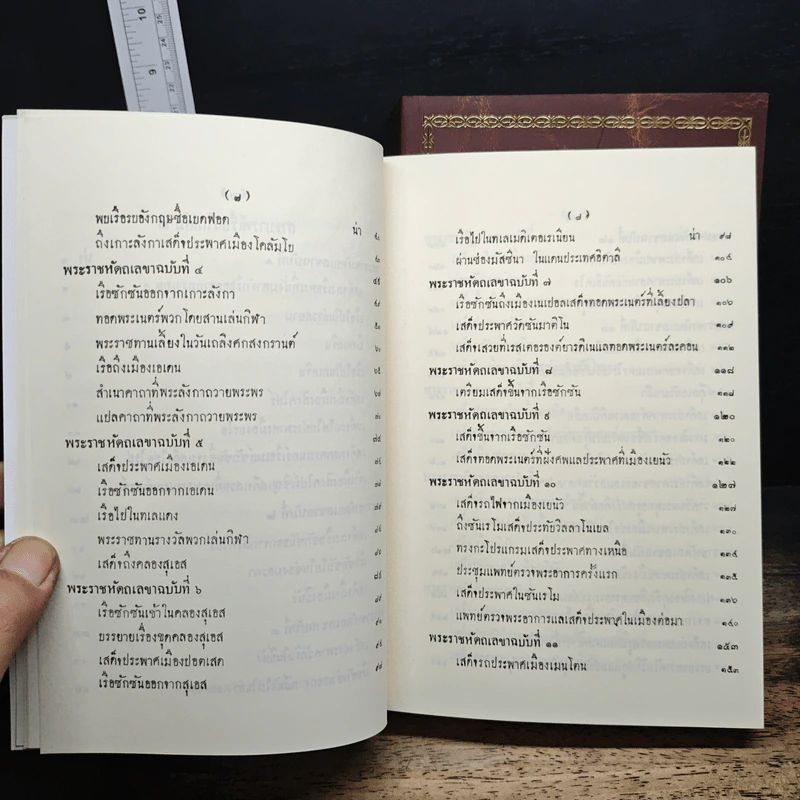 10
9
25
24
23
22
(๗)
น่า
พบเรือรบอังกฤษชื่อเยดฟอด
ถึงเกาะลังกาเสด็จประพาศเมืองโคลัมโบ
พระราชหัดถเลขาฉบับที่ ๔
เรือซักซันออกจากเกาะลังกา
ทอดพระเนตร์พวกโดยสานเล่นกิฬา
พระราชทานเลี้ยงในวันเถลิงศกสงกรานต์
เรือถึงเมืองเอเดน
สำเนาคาถาที่พระลังกาถวายพระพร
แปลคาถาที่พระลังกาถวายพระพร
พระราชหัดถเลขาฉบับที่ ๕
เสด็จประพาศเมืองเอเดน
เรือซักซันออกจากเอเดน
เรือไปในทเลแดง
พระราชทานรางวัลพวกเล่นกิฬา
เสด็จถึงคลองสุเอส
พระราชหัดถเลขาฉบับที่ ๖
เรือซักซันเข้าในคลองสุเอส
บรรยายเรื่องขุดคลองสุเอส
เสด็จประพาศเมืองปอตเสด
เรือซักซันออกจากสุเอส
(๘)
น่า
เรือไปในทเลเมดิเตอเรเนียน ๙๘
ผ่านช่องมัสซินา ในแดนประเทศอิตาลี ๑๐๔
พระราชหัดถเลขาฉบับที่ ๗ ๑๐๖
เรือซักซันถึงเมืองเนเปอลเสด็จทอดพระเนตร์ที่เลี้ยงปลา ๑๐๖
เสด็จประพาศวัดซันมาติโน ๑๐๙
เสด็จเสวยที่เรสเตอรองค์ยารดิเนแลทอดพระเนตร์ละคอน ๑๑๒
พระราชหัดถเลขาฉบับที่ ๘ ๑๑๘
เตรียมเสด็จขึ้นจากเรือซักซัน ๑๑๘
พระราชหัดถเลขาฉบับที่ ๙ ๑๒๐
เสด็จขึ้นจากเรือซักซัน ๑๒๐
เสด็จทอดพระเนตร์ที่ฝังศพแลประพาศที่เมืองเยนัว ๑๒๒
พระราชหัดถเลขาฉบับที่ ๑๐ ๑๒๗
เสด็จรถไฟจากเมืองเยนัว ๑๒๗
ถึงซันเรโมเสด็จประทับวิลลาโนเบล ๑๓๐
ทรงกะโปรแกรมเสด็จประพาศทางเหนือ ๑๓๔
ประชุมแพทย์ตรวจพระอาการครั้งแรก ๑๓๕
เสด็จประพาศในซันเรโม ๑๓๖
แพทย์ตรวจพระอาการแลเสด็จประพาศในเมืองต่อมา ๑๔๐
พระราชหัดถเลขาฉบับที่ ๑๑ ๑๕๓
เสด็จรถประพาศเมืองเมนโตน ๑๕๓